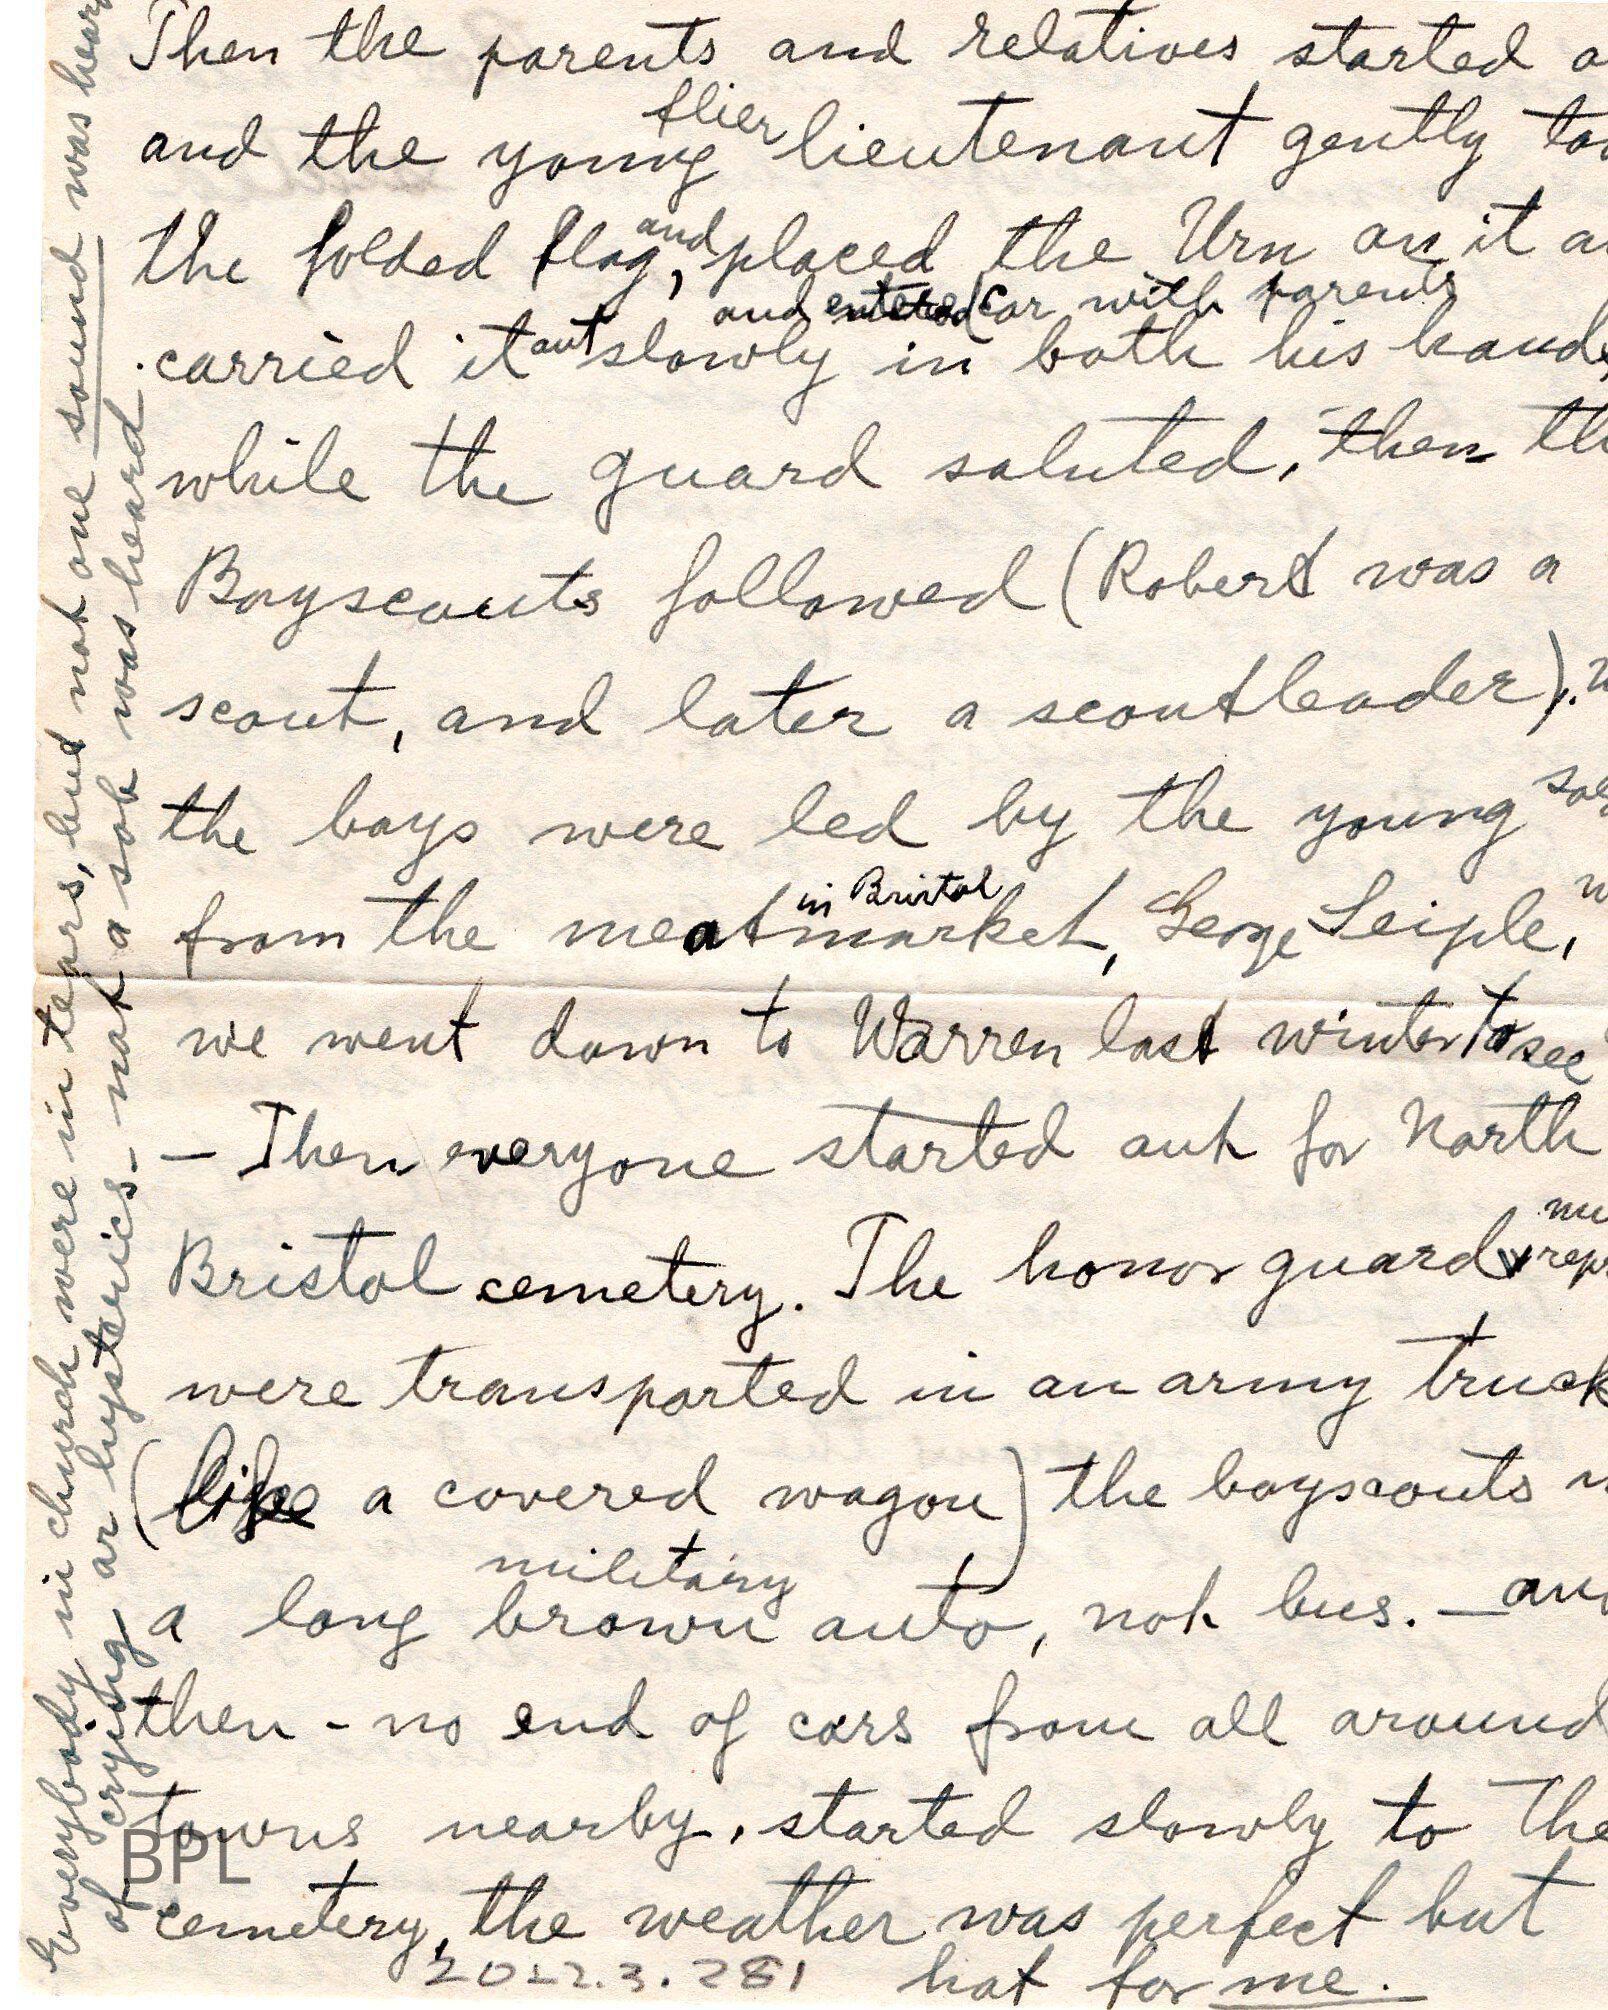 Then the parents and relatives started
flier
and the young lieutenant gently
and
the folded flag, placed the Urn on it
and entered car with parents
carried it out slowly in both his hands,
while the guard saluted, then
Boyscouts followed (Robert was a
scout, and later a scoutleader).
the boys were led by the young
in Bristol
from the meatmarket, George Seiple,
we went down to Warren last winter to see
– Then everyone started out for North
Bristol cemetery. The honor guard
were transported in an army truck
(like a covered wagon) the boyscouts
military
a long brown auto, not bus. — and
then - no end of cars from all around
towns nearby, started slowly to the
cemetery, the weather was perfect but
hot for me.
2022.3.281
BPL
Everybody in church were in tears, but not one sound was
of crying or hysterics - not a sob was heard.